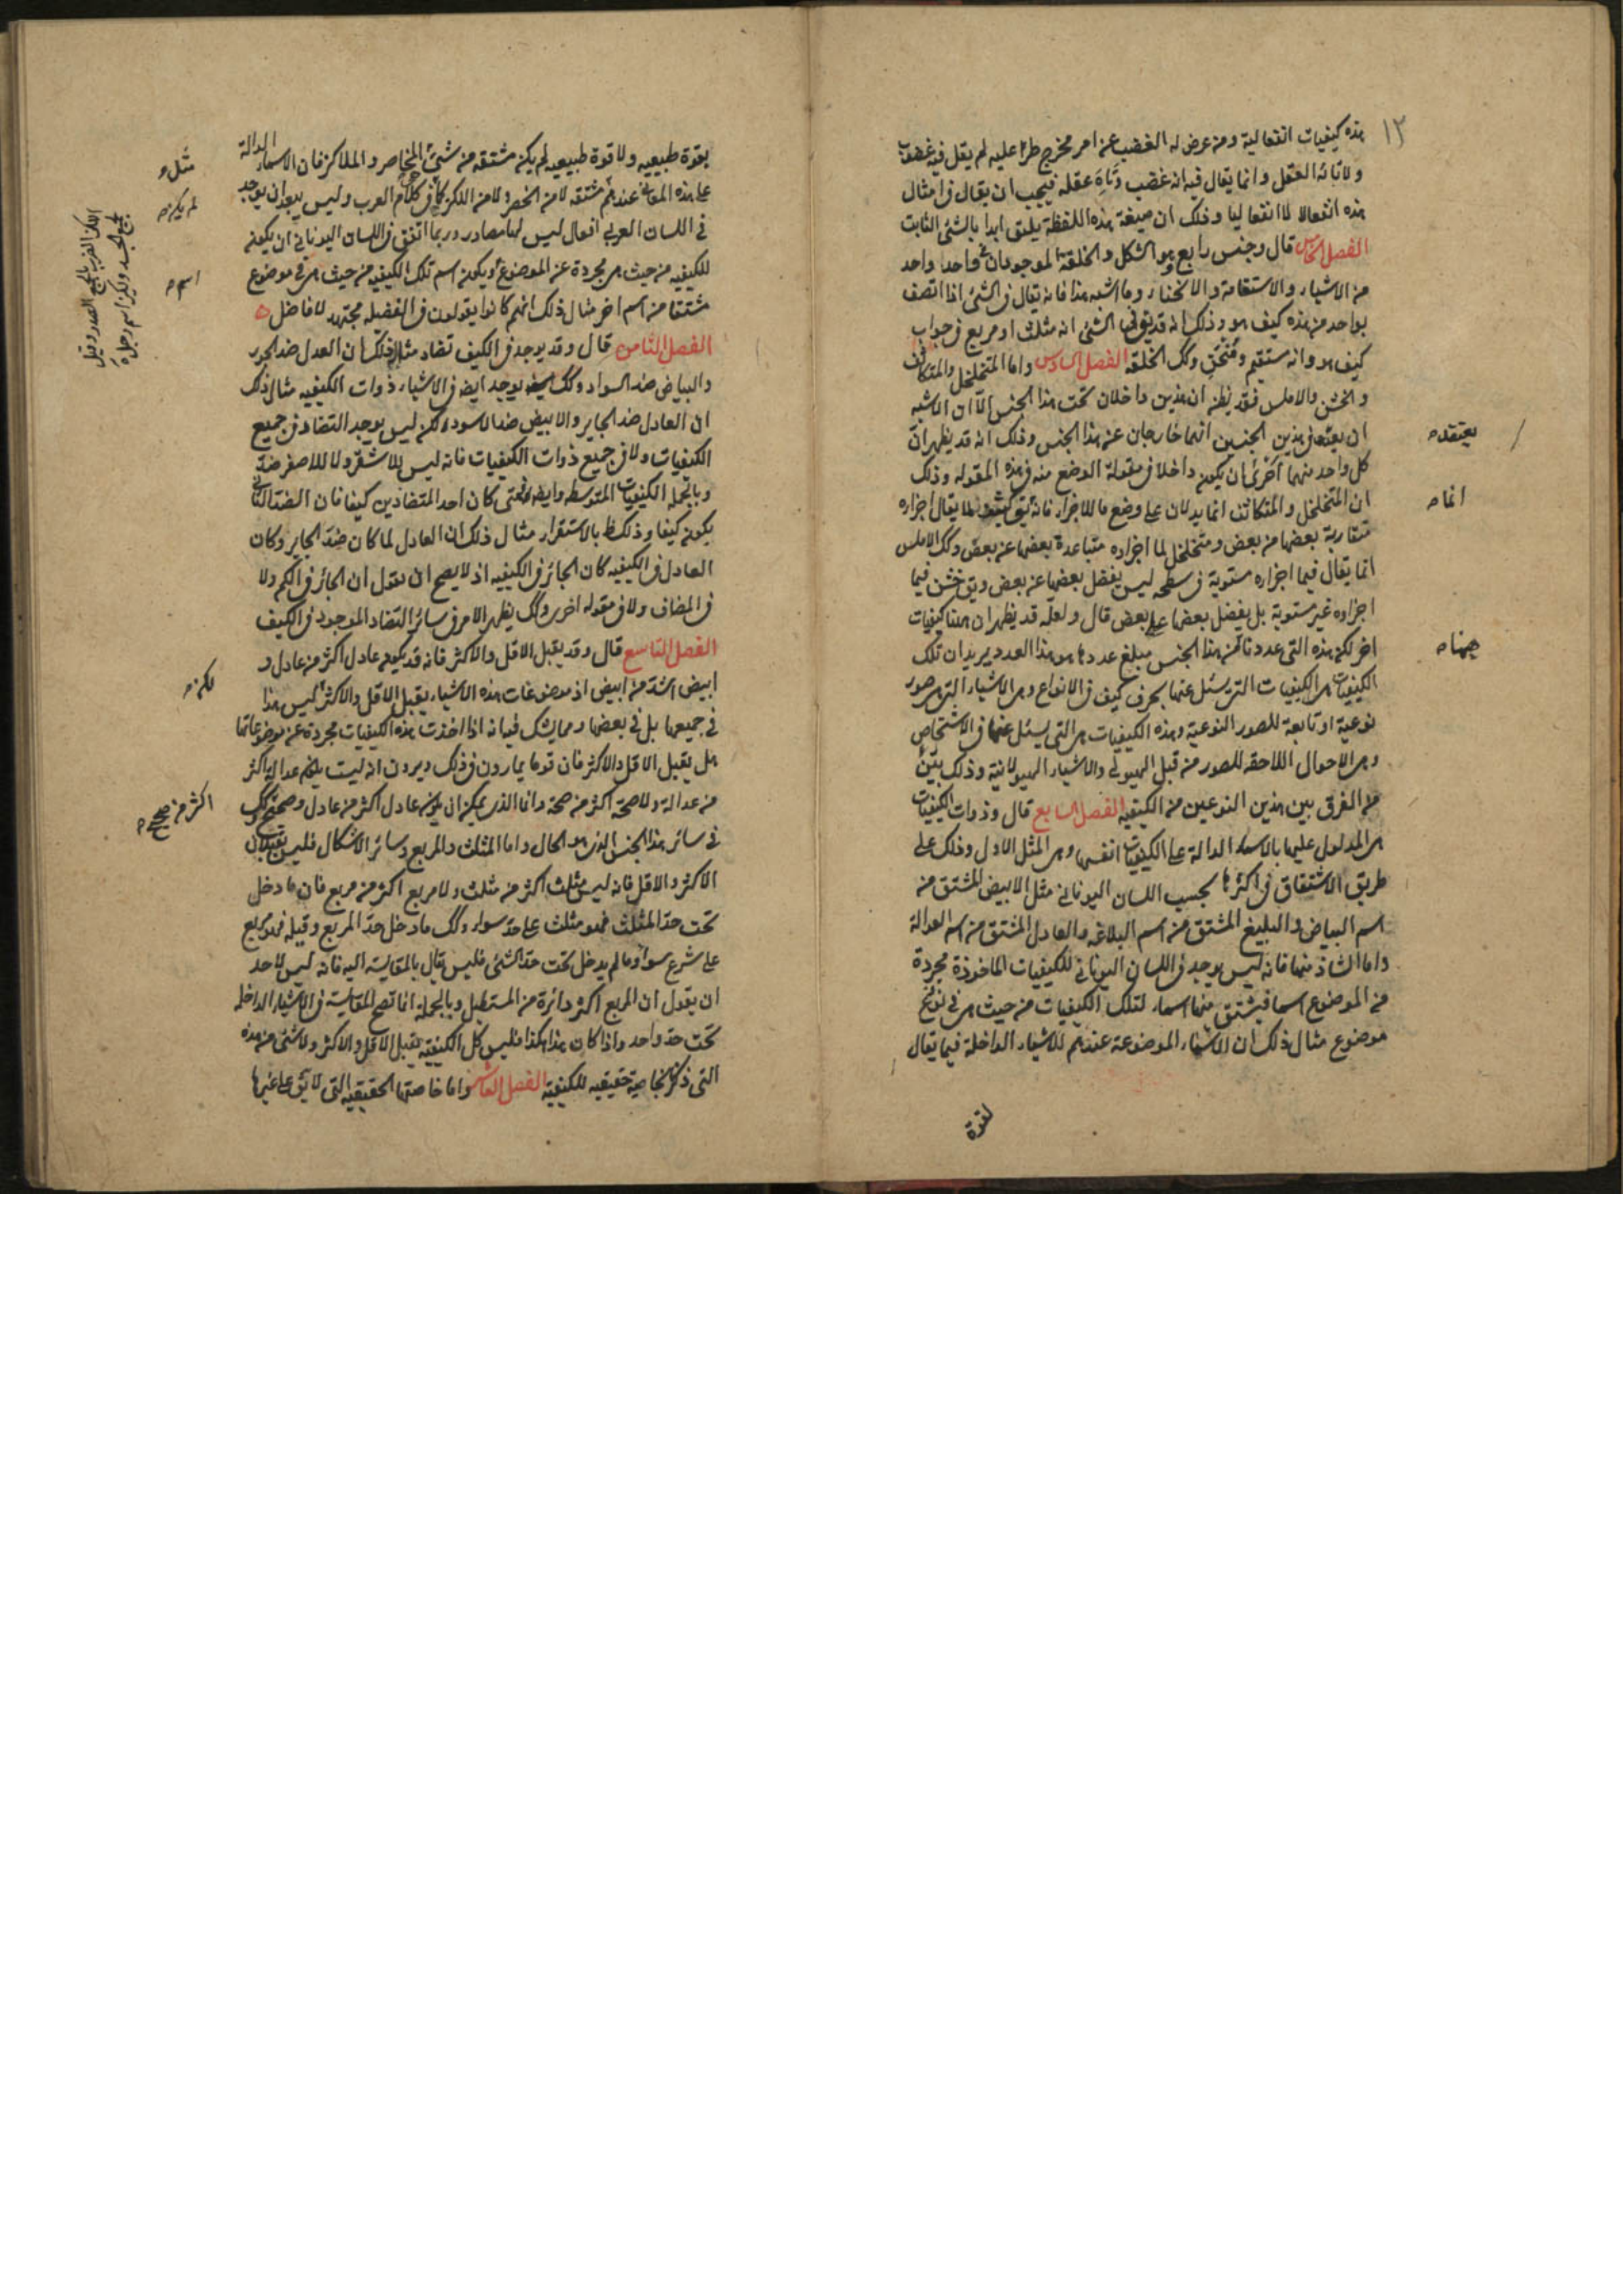 ١٢
هذه كيفيات انفعالية ومن عرض له الغضب عن امر مخرج طرا عليه لم يقل فيه غضوب
ولا تائه العقل وانما يقال فيه انه غضب وتاه عقله فيجب ان يقال في امثال
هذه انفعالا لا انفعاليا وذلك ان صيغة هذه اللفظة يليق ابدا بالشئ الثابت
الفصل الخامس قال وجنس رابع وهو الشكل والخلقة الموجودان في واحد واحد
من الاشياء والاستقامة والانحناء وما اشبه هذا فانه يقال في الشئ اذا اتصف
بواحد من هذه كيف هو وذلك انه قد يق في الشئ انه مثلث او مربع في جواب
كيف هو وانه مستقيم ومنحن وكك الخلقة الفصل السادس واما المتخلخل والمتكاثف
والخشن والاملس فقد يظن ان هذين داخلان تحت هذا الجنس الا ان الاشبه
ان يعتقد في هذين الجنسين انهما خارجان عن هذا الجنس وذلك انه قد يظهر ان
كل واحد منهما احرى ان يكون داخلا في مقولة الوضع منه في هذه المقوله وذلك
ان المتخلخل والمتكاثف انما يدلان على وضع ما للاجزاء فانه يق كثيف لما يقال اجزاره
متقاربة بعضها من بعض ومتخلخل لما اجزاره متباعدة بعضها عن بعض وكك الاملس
انما يقال فيما اجزاره مستوية في سطحه ليس يفضل بعضها عن بعض ويق خشن فيما
اجزاره غير مستوية بل يفضل بعضها على بعض قال ولعله قد يظهر ان هنا كيفيات
اخر لكن هذه التى عددنا من هذا الجنس مبلغ عددها هو هذا العدد يريد ان تلك
الكيفيات هي الكيفيات التي يسئل عنها بحرف كيف في الانواع وهي الاشياء التي هي صور
نوعية او تابعة للصور النوعية وهذه الكيفيات هي التى يسئل عنها في الاشخاص
وهي الاحوال اللاحقه للصور من قبل الهيولى والاشياء الهيولانية وذلك بين
من الفرق بين هذين النوعين من الكيفيه الفصل السابع قال وذوات الكيفيات
هي المدلول عليها بالاسماء الدالة على الكيفيات انفسها وهي المثل الاول وذلك على
طريق الاشتقاق في اكثرها بحسب اللسان اليوناني مثل الابيض المشتق من
اسم البياض والبليغ المشتق من اسم البلاغه والعادل المشتق من اسم العدالة
واما الشاذ منها فانه ليس يوجد في اللسان اليوناني للكيفيات الماخوذة مجردة
من الموضوع اسما فيشتق منها اسماء لتلك الكيفيات من حيث هي في
موضوع مثال ذلك ان الاسماء الموضوعة عندهم للاشياء الداخلة فيما يقال
بقوة
يعتقد
انما
ههنا
بقوة طبيعيه ولا قوة طبيعيه لم يكن مشتقه من شئ المخاصر والملاكز فان الاسماء الدالة
على هذه المعانى عندهم مشتقه لا من الخصر ولا من اللكز كما في كلام العرب وليس يبعد ان يوجد
في اللسان العربي افعال ليس لها مصادر وربما اتفق في اللسان اليوناني ان يكون
للكيفيه من حيث هي مجردة عن الموضوع ويكون اسم تلك الكيفيه من حيث هي في موضوع
مشتقا من اسم اخر مثال ذلك انهم كانوا يقولون في الفضيله مجتهد لا فاضل
الفصل الثامن قال وقد يوجد في الكيف تضاد مثال ذلك ان العدل ضد الجور
والبياض ضد السواد وكك يوجد ايضا في الاشياء ذوات الكيفيه مثال ذلك
ان العادل ضد الجاير والابيض ضد الاسود ولكن ليس يوجد التضاد في جميع
الكيفيات ولا في جميع ذوات الكيفيات فانه ليس للاشقر ولا للاصفر ضد
وبالجمله الكيفيات المتوسطه وايضا فمتى كان احد المتضادين كيفا فان الضد الثاني
يكون كيفا وذلك ظ بالاستقراء مثال ذلك ان العادل لما كان ضد الجاير وكان
العادل في الكيفيه كان الجائر في الكيفيه اذ لا يصح ان نقول ان الجائر في الكم ولا
في المضاف ولا في مقوله اخرى وكك يظهر الامر في سائر التضاد الموجود في الكيف
الفصل التاسع قال وقد يقبل الاقل والاكثر فانه قد يكون عادل اكثر من عادل و
ابيض اشد من ابيض اذ موضوعات هذه الاشياء يقبل الاقل والاكثر ليس هذا
في جميعها بل في بعضها ومما يشك فيه انه اذا اخذت هذه الكيفيات مجردة عن موضوعاتها
هل يقبل الاقل والاكثر فان قوما يمارون في ذلك ويرون انه ليست عدالة اكثر
من عدالة ولا صحة اكثر من صحة وانما الذي يمكن ان يكون عادل اكثر من عادل وصحيح وكك
في سائر هذا الجنس الذي هو الحال واما المثلث والمربع وسائر الاشكال فليس يقبلان
الاكثر والاقل فانه ليس مثلث اكثر من مثلث ولا مربع اكثر من مربع فان ما دخل
تحت حد المثلث فهو مثلث على حد سواء وكك ما دخل حد المربع وقبله فهو مربع
على شرع سواء وما لم يدخل تحت حد الشئ فليس يقال بالمقايسة اليه فانه ليس لاحد
ان يقول ان المربع اكثر دائرة من المستطيل وبالجملة انما تصح المقايسة في الاشياء الداخله
تحت حد واحد واذا كان هذا هكذا فليس كل الكيفية تقبل الاقل والاكثر ولا شئ من هذه
التى ذكرنا بخاصية حقيقيه للكيفية الفصل العاشر واما خاصتها الحقيقيه التى لا يق على غيرها
مثل
لم يكن
اسم
لكن
اكثر من صحيح
اللكز الضرب بالجمع في الصدر وقيل
بجميع الجسد ولكيز اسم رجل